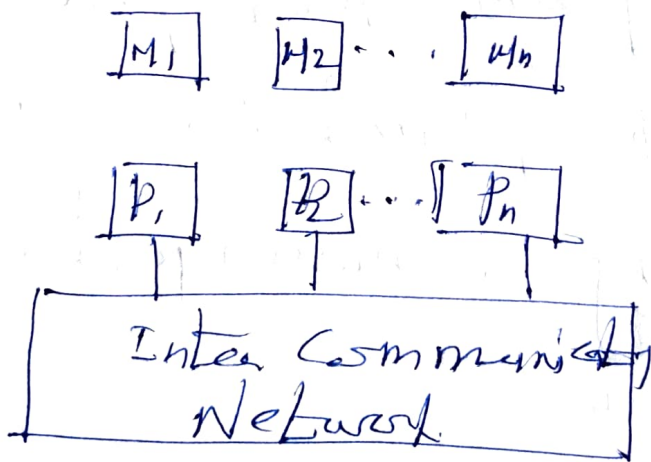 M1 M2 . . . Mn
P1 P2 . . . Pn
Inter Communicatn
Network